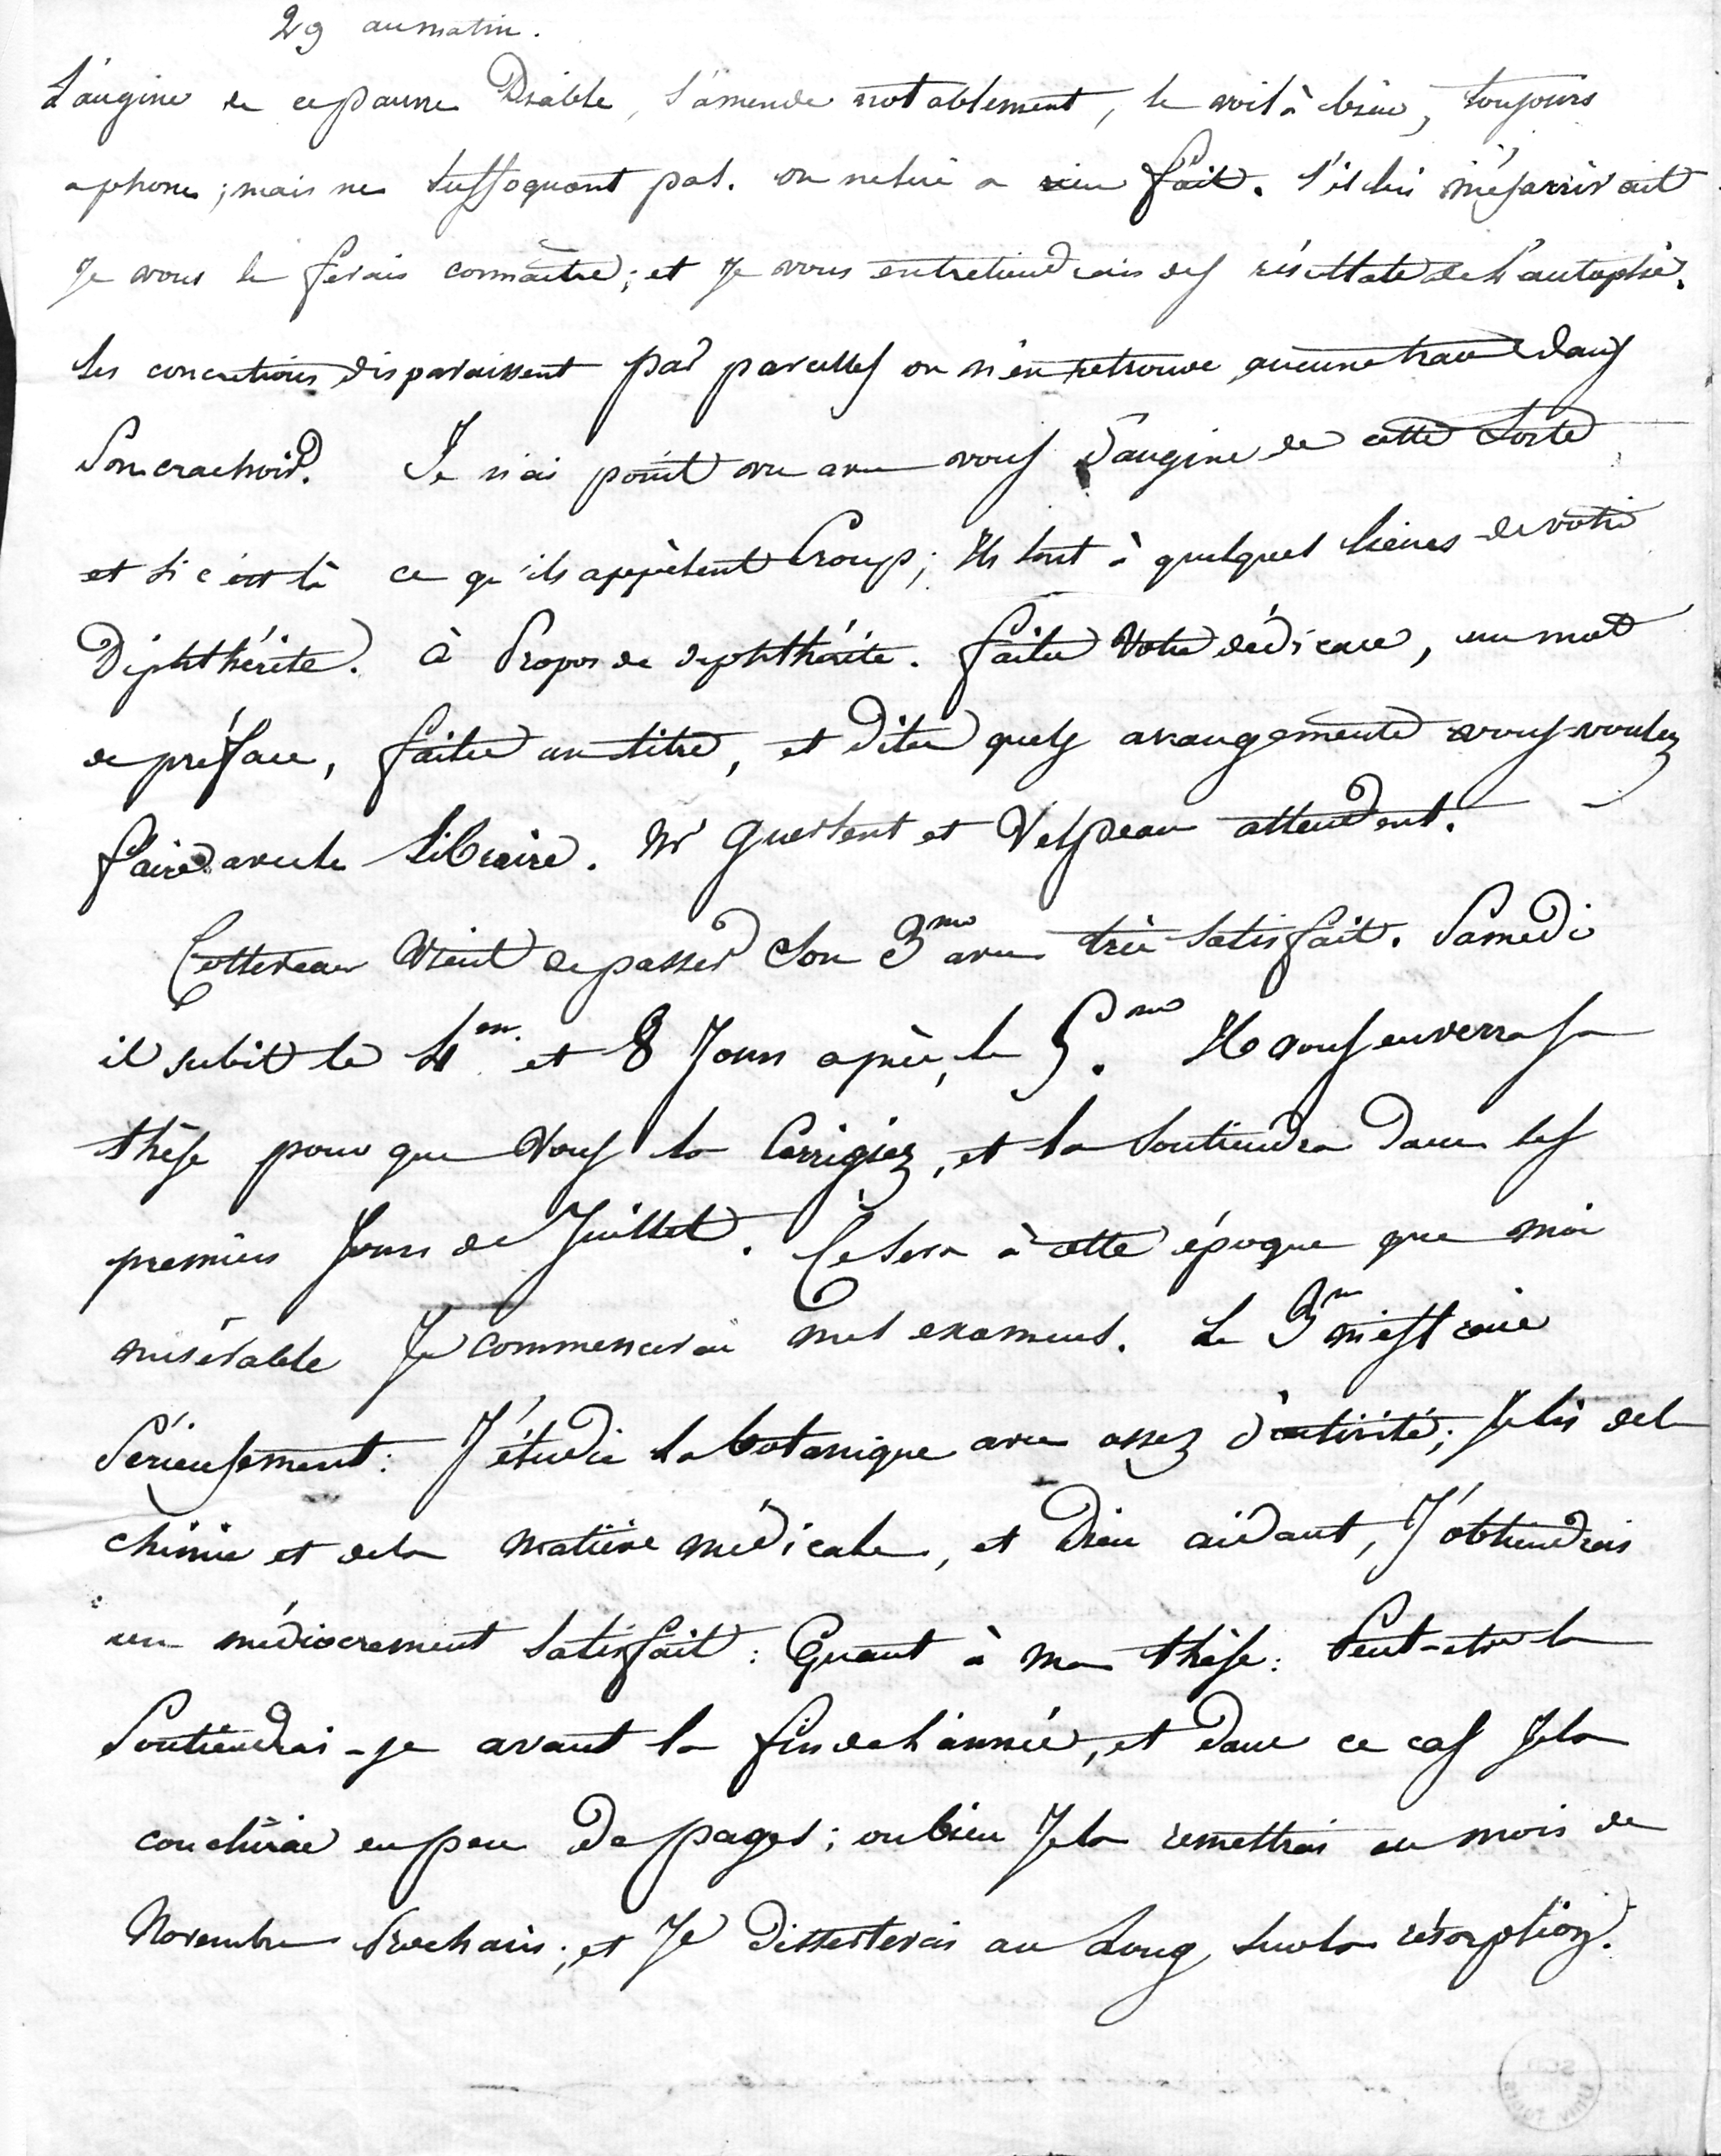 29 au matin.
L'angine de ce pauvre Diable, s'amende notablement, le voilà bien, toujours
aphone; mais ne suffoquant pas. on ne lui a rien fait. s'il lui mésarrivait
Je vous le ferais connaître; et Je vous entretiendrais des résultats de l'autopsie.
Les concrétions disparaissent par parcelles on n'en retrouve aucune trace dans
Son crachoir. Je n'ai point vu avec vous d'angine de cette sorte
et si c'est là ce qu'ils appèlent Croup; Ils sont à quelques lieues de votre
Diphthérite. à Propos de diphthérite. faites Votre dédicace, un mot
de préface, faites un titre, et dites quels arrangements vous voulez
faire avec le Libraire. Mr Guersent et Velpeau attendent.
Cottereau Vient de passer Son 3me avec très satisfait. Samedi
il subit le 4me et 8 Jours après, le 5me Il vous enverra sa
thèse pour que Vous la Corrigiez, et la soutiendra dans les
premiers Jours de Juillet. Ce sera à cette époque que moi
misérable Je commencerai mes examens. Le 3me m'effraie
Sérieusement: J'étudie la botanique avec assez d'activité; Je lis de la
chimie et de la matière médicale, et Dieu aidant, J'obtiendrais
un médiocrement satisfait: Quant à ma thèse: Peut-être la
Soutiendrai-je avant la fin de l'année, et dans ce cas Je la
conclurai en peu De pages; ou bien Je la remettrai au mois de
Novembre Prochain; et Je disserterai au Long, sur la résorption.